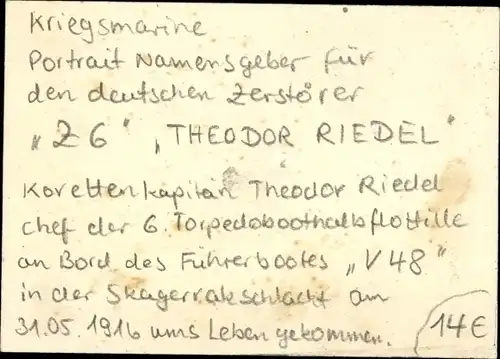 Kriegsmarine
Portrait Namensgeber für
den deutschen Zerstörer
„Z6“ „THEODOR RIEDEL“
Korettenkapitän Theodor Riedel
Chef der 6. Torpedoboothalbflottille
an Bord des Führerbootes „V48“
in der Skagerrakschlacht am
31.05.1916 ums Leben gekommen.
14€